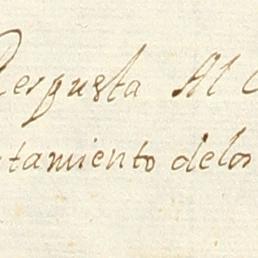 Respuesta Al
tamiento delos